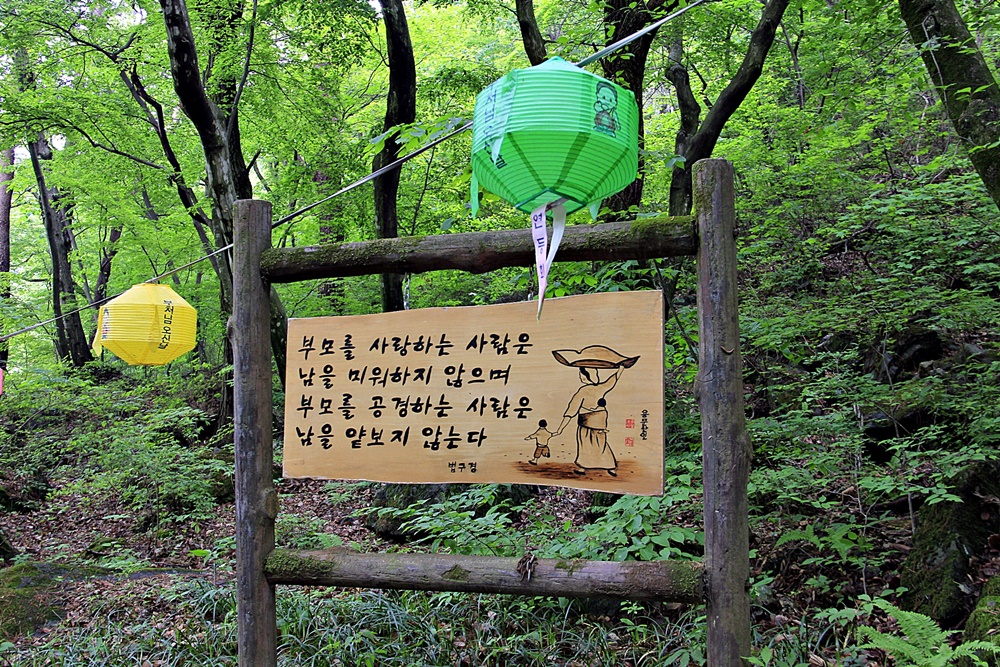 부모를 사랑하는 사람은
남을 미워하지 않으며
부모를 공경하는 사람은
남을 얕보지 않는다
범구경
부처님오신날